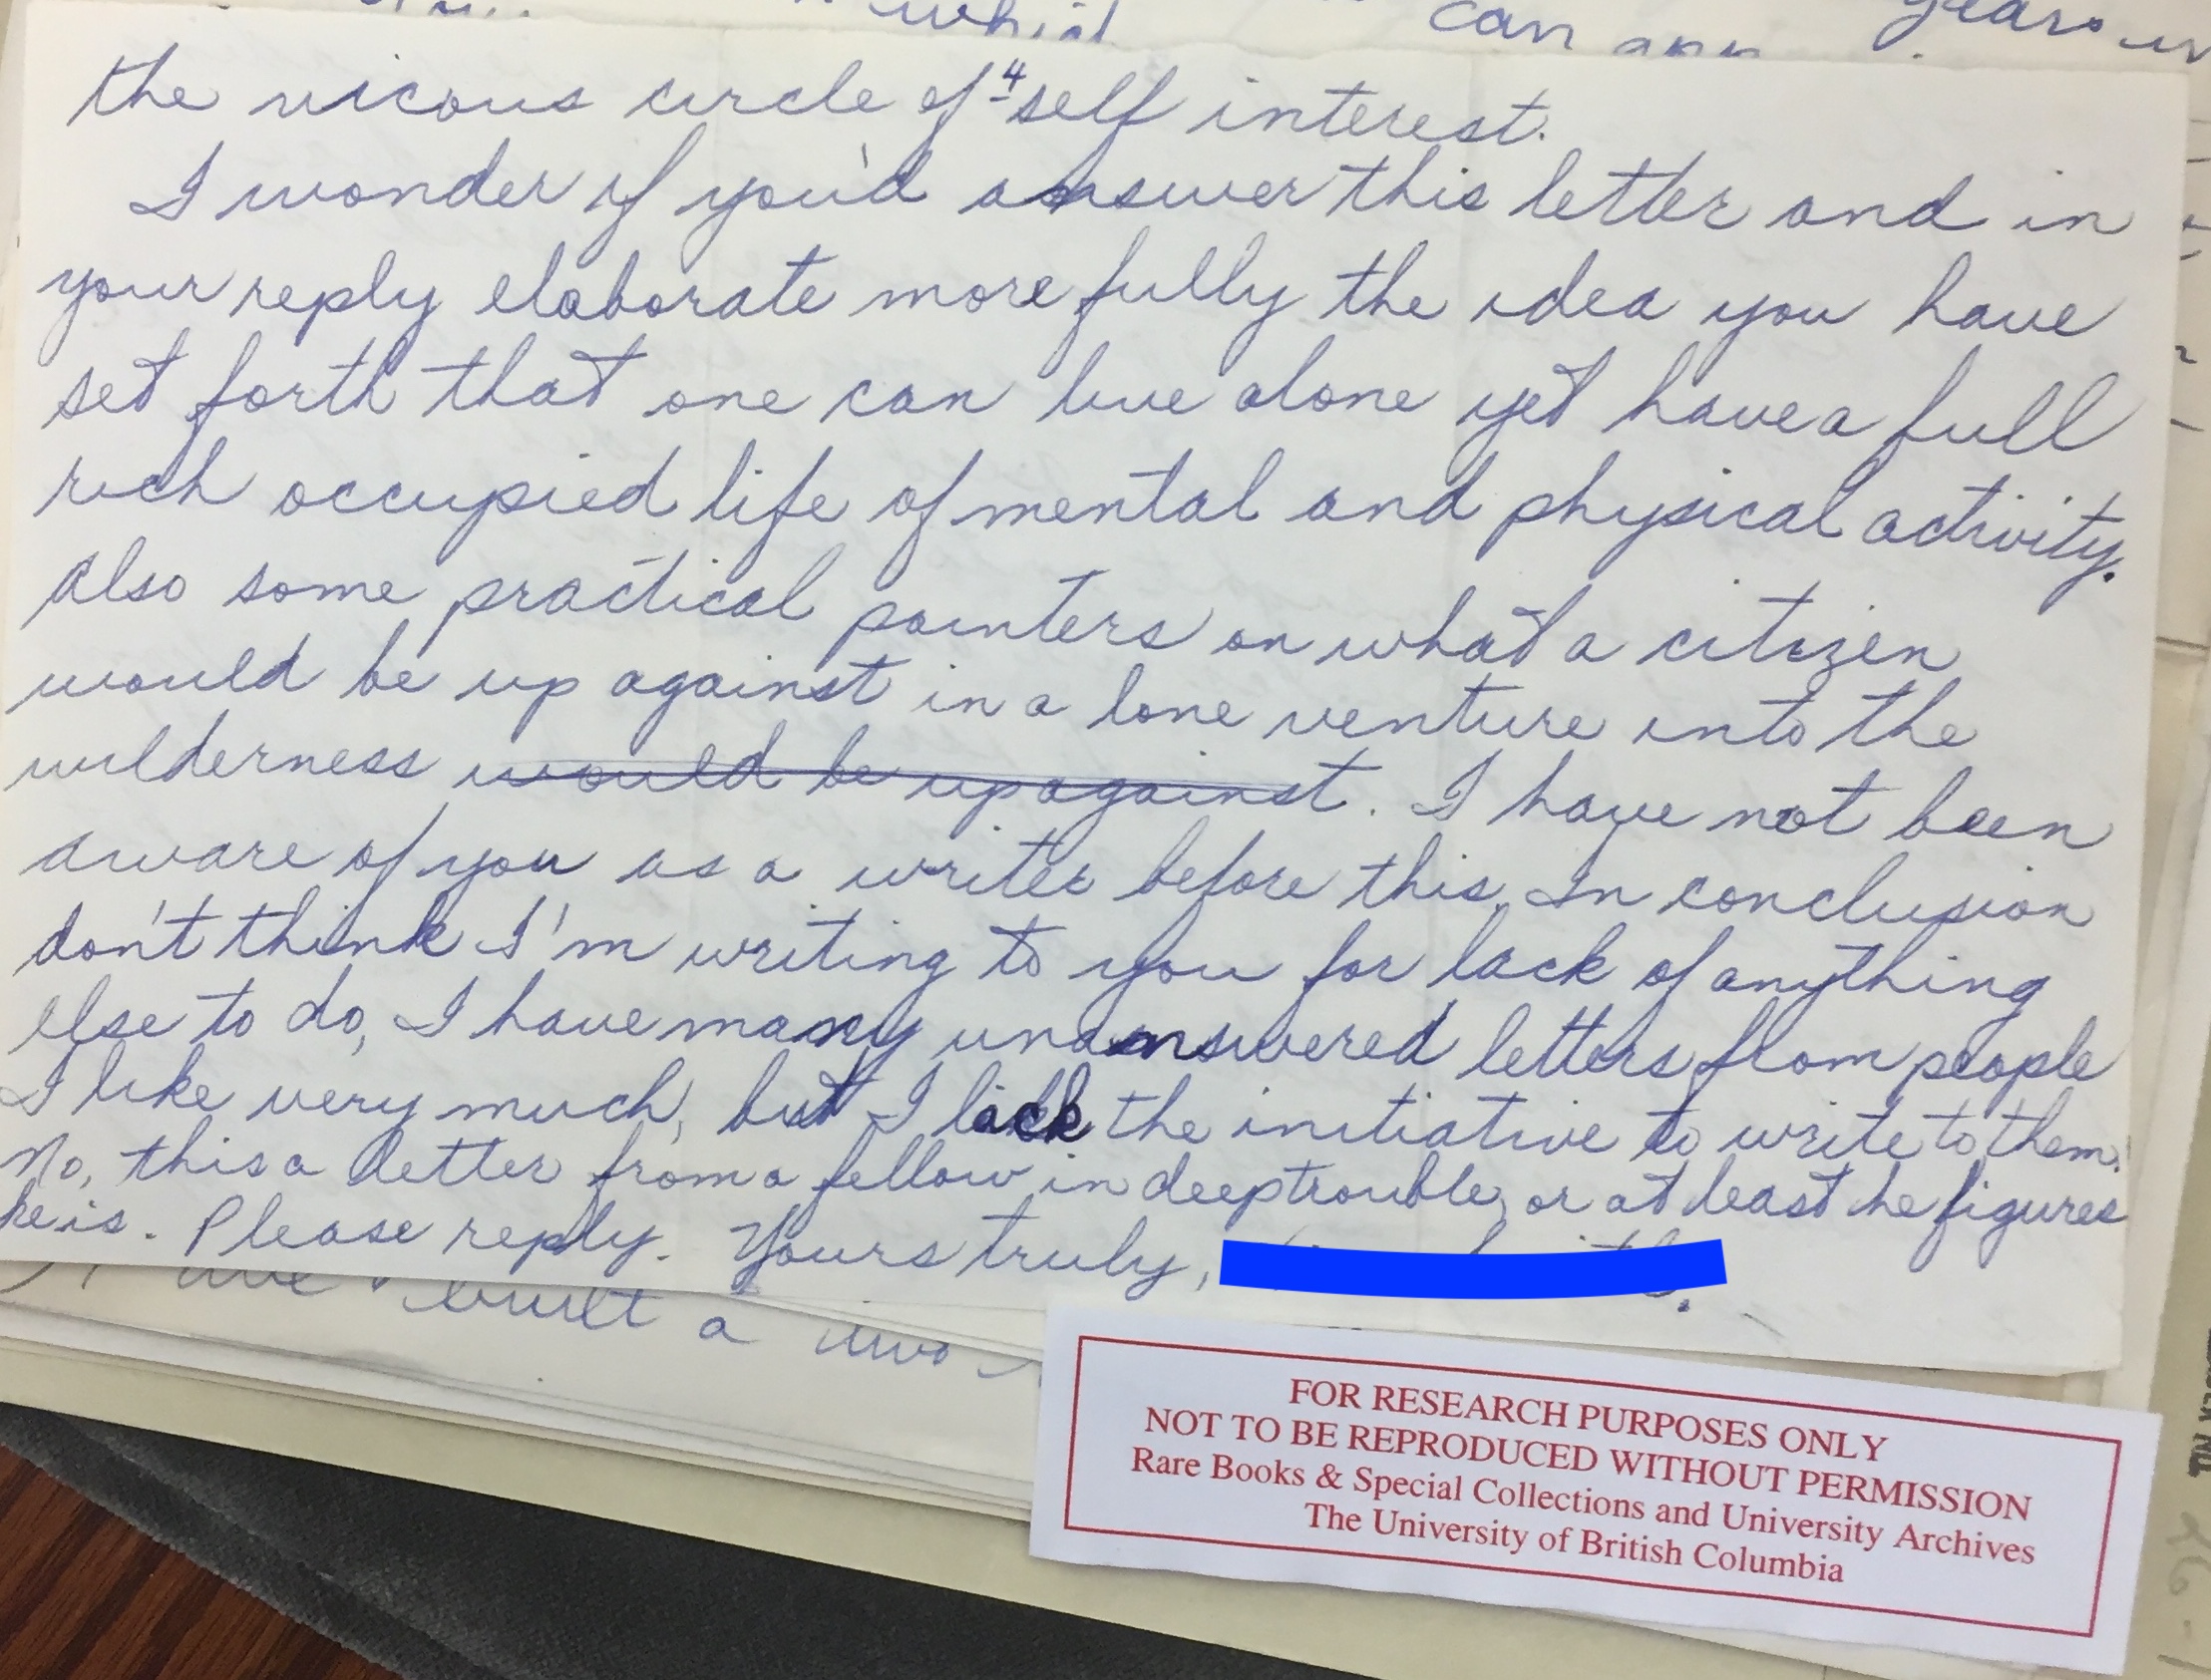 which can any years
4
the vicous circle of self interest.
I wonder if you'd answer this letter and in
your reply elaborate more fully the idea you have
set forth that one can live alone yet have a full
rich occupied life of mental and physical activity.
Also some practical pointers on what a citizen
would be up against in a lone venture into the
wilderness would be up against. I have not been
aware of you as a writer before this. In conclusion
don't think I'm writing to you for lack of anything
else to do, I have many unanswered letters from people
I like very much, but I lack the initiative to write to them.
No, this a letter from a fellow in deep trouble, or at least he figures
he is. Please reply. Yours truly,
built a two
FOR RESEARCH PURPOSES ONLY
NOT TO BE REPRODUCED WITHOUT PERMISSION
Rare Books & Special Collections and University Archives
The University of British Columbia